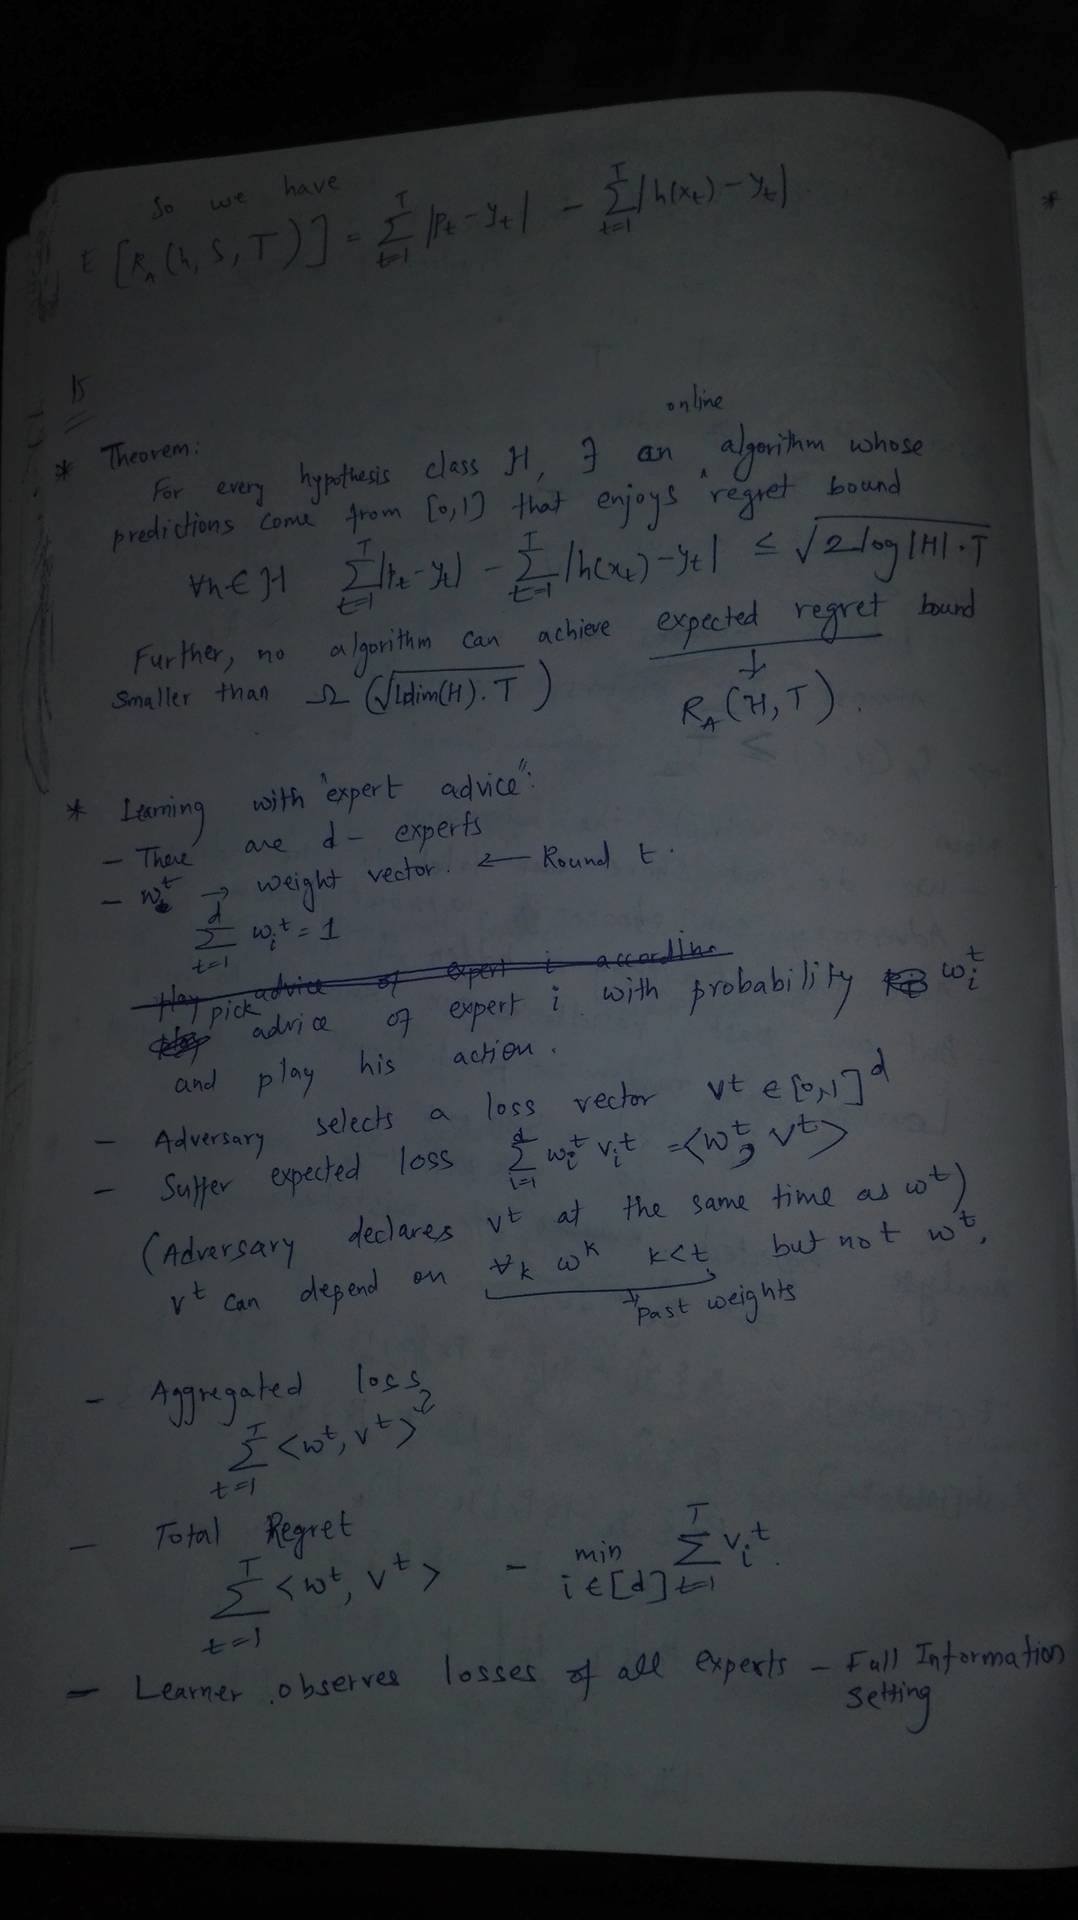 So we have
E [R_A (h, S, T)] = \sum_{t=1}^{T} |p_t - y_t| - \sum_{t=1}^{T} |h(x_t) - y_t|
15
* Theorem:
For every hypothesis class H, ∃ an online algorithm whose
predictions come from [0,1] that enjoys regret bound
∀h ∈ H \sum_{t=1}^{T} |p_t - y_t| - \sum_{t=1}^{T} |h(x_t) - y_t| ≤ \sqrt{2 log|H| . T}
Further, no algorithm can achieve expected regret bound
smaller than Ω (\sqrt{Ldim(H) . T})
↓ R_A (H, T).
* Learning with "expert advice":
- There are d - experts
- w^t → weight vector. ← Round t.
\sum_{t=1}^{d} w_i^t = 1
play advice of expert i according
pick advice of expert i with probability w_i^t
and play his action.
- Adversary selects a loss vector v^t ∈ [0,1]^d
- Suffer expected loss \sum_{i=1}^{d} w_i^t v_i^t = <w^t, v^t>
(Adversary declares v^t at the same time as w^t)
v^t can depend on ∀k w^k k<t but not w^t.
↓ Past weights
- Aggregated loss
\sum_{t=1}^{T} <w^t, v^t>
- Total Regret
\sum_{t=1}^{T} <w^t, v^t> - min_{i ∈ [d]} \sum_{t=1}^{T} v_i^t.
- Learner observes losses of all experts - Full Information
Setting
*